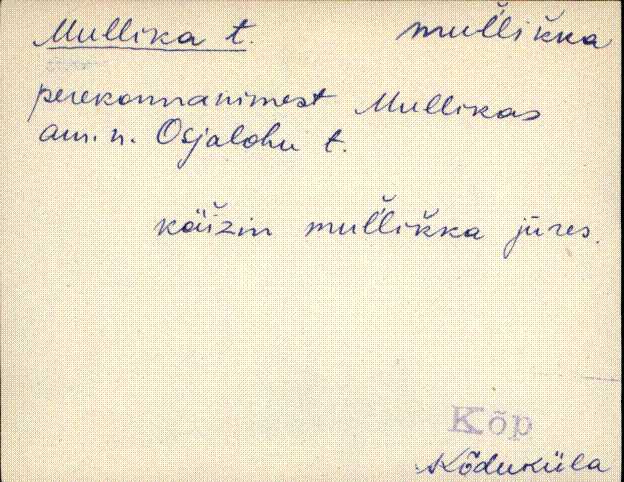 Mullika t. mul̆lik̆ka
perekonnanimest Mullikas
am. n. Osjalohu t.
käi̮zin mul̆lik̆ka jūres.
Kõp
Kõduküla